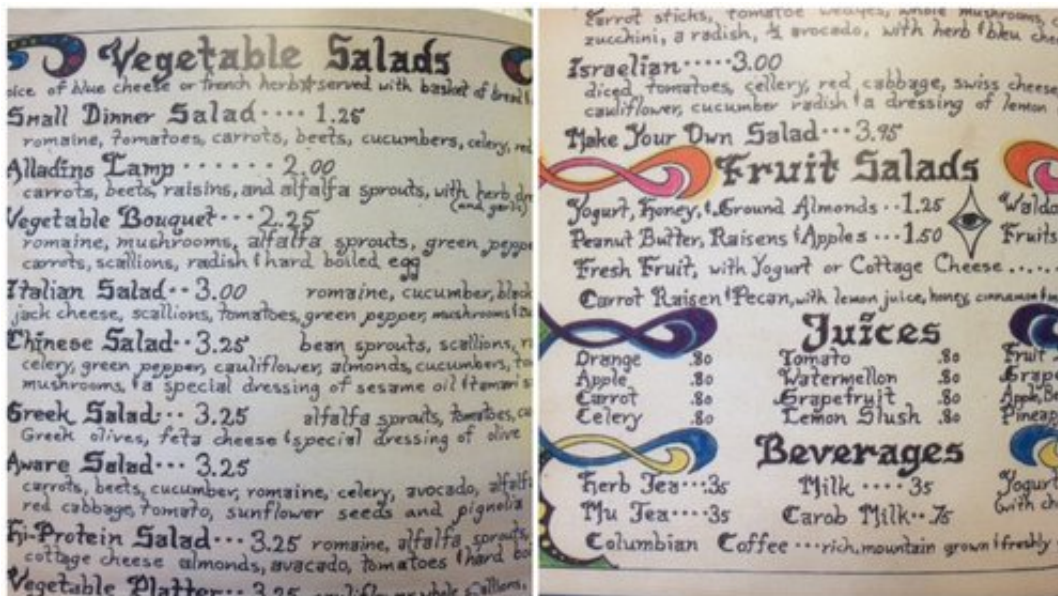 Vegetable Salads
of blue cheese or french herb served with basket of bread
Small Dinner Salad .... 1.25
romaine, tomatoes, carrots, beets, cucumbers, celery, red
Alladins Lamp ....... 2.00
carrots, beets, raisins, and alfalfa sprouts, with herb
(and garlic)
Vegetable Bouquet .... 2.25
romaine, mushrooms, alfalfa sprouts, green
carrots, scallions, radish & hard boiled egg
Italian Salad .. 3.00 romaine, cucumber,
jack cheese, scallions, tomatoes, green pepper, mushrooms &
Chinese Salad .. 3.25 bean sprouts, scallions,
celery, green pepper, cauliflower, almonds, cucumbers,
mushrooms, & a special dressing of sesame oil & tamari
Greek Salad ... 3.25 alfalfa sprouts, tomatoes,
Greek olives, feta cheese & special dressing of olive
Aware Salad ... 3.25
carrots, beets, cucumber, romaine, celery, avocado,
red cabbage, tomato, sunflower seeds and pignolia
Hi-Protein Salad ... 3.25 romaine, alfalfa, sprouts,
cottage cheese almonds, avacado, tomatoes & hard
Vegetable Platter ... 3.25 cauliflower, whole scallions,
Carrot sticks, tomatoe wedges, whole mushrooms,
zucchini, a radish, ½ avocado, with herb & bleu
Israelian ..... 3.00
diced tomatoes, cellery, red cabbage, swiss cheese
cauliflower, cucumber radish & a dressing of lemon
Make Your Own Salad ... 3.95
Fruit Salads
Yogurt, Honey, & Ground Almonds .. 1.25
Peanut Butter, Raisens & Apples ... 1.50 Fruits
Fresh Fruit, with Yogurt or Cottage Cheese ......
Carrot Raisen & Pecan, with lemon juice, honey, cinnamon
Juices
Orange .80 Tomato .80 Fruit
Apple .80 Watermellon .80 Grape
Carrot .80 Grapefruit .80
Celery .80 Lemon Slush .80
Beverages
Herb Tea ... .35 Milk .... 35 Yogurt
Mu Tea .... 35 Carob Milk .. .75 (with
Columbian Coffee ... rich, mountain grown & freshly